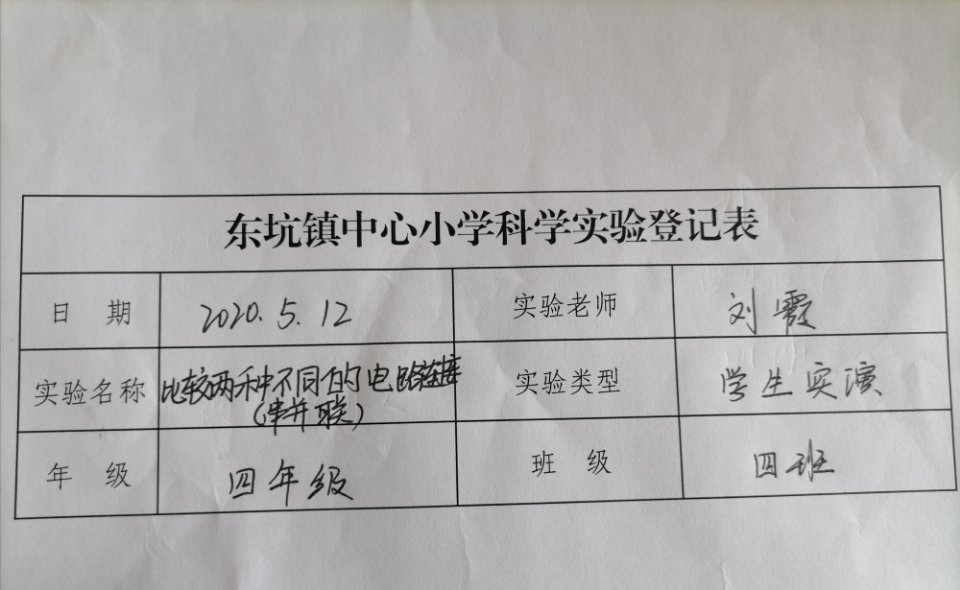 东坑镇中心小学科学实验登记表
日 期 2020.5.12 实验老师 刘霞
实验名称 比较两种不同的电路连接 实验类型 学生实演
(串并联)
年 级 四年级 班 级 四班